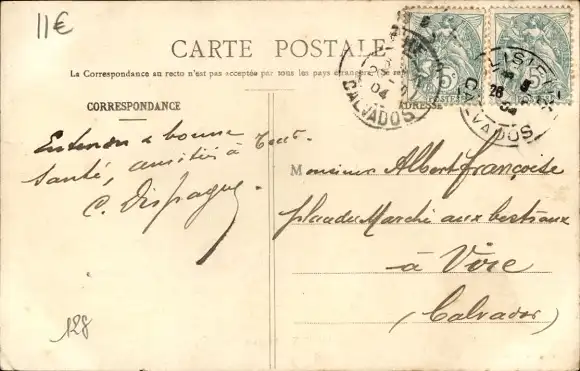 11€
CARTE POSTALE
La Correspondance au recto n'est pas acceptée par tous les pays étrangers.
CORRESPONDANCE
ADRESSE
Entenon a bonne
santé, amitiés à Tous.
C. Dispagne
Monsieur Albert Françoise
place du Marché aux bestiaux
à Vire
(Calvados)
128
04
CALVADOS
5c
POSTES
5c
26
04
CALVADOS